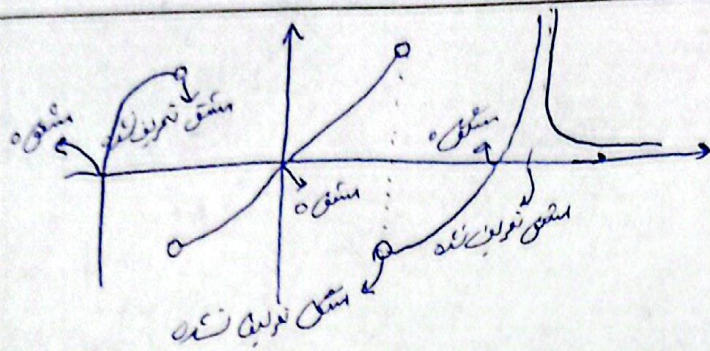 مشتق ۰
مشتق تعریف نشده
مشتق ۰
مشتق ۰
مشتق تعریف نشده
مشتق تعریف نشده